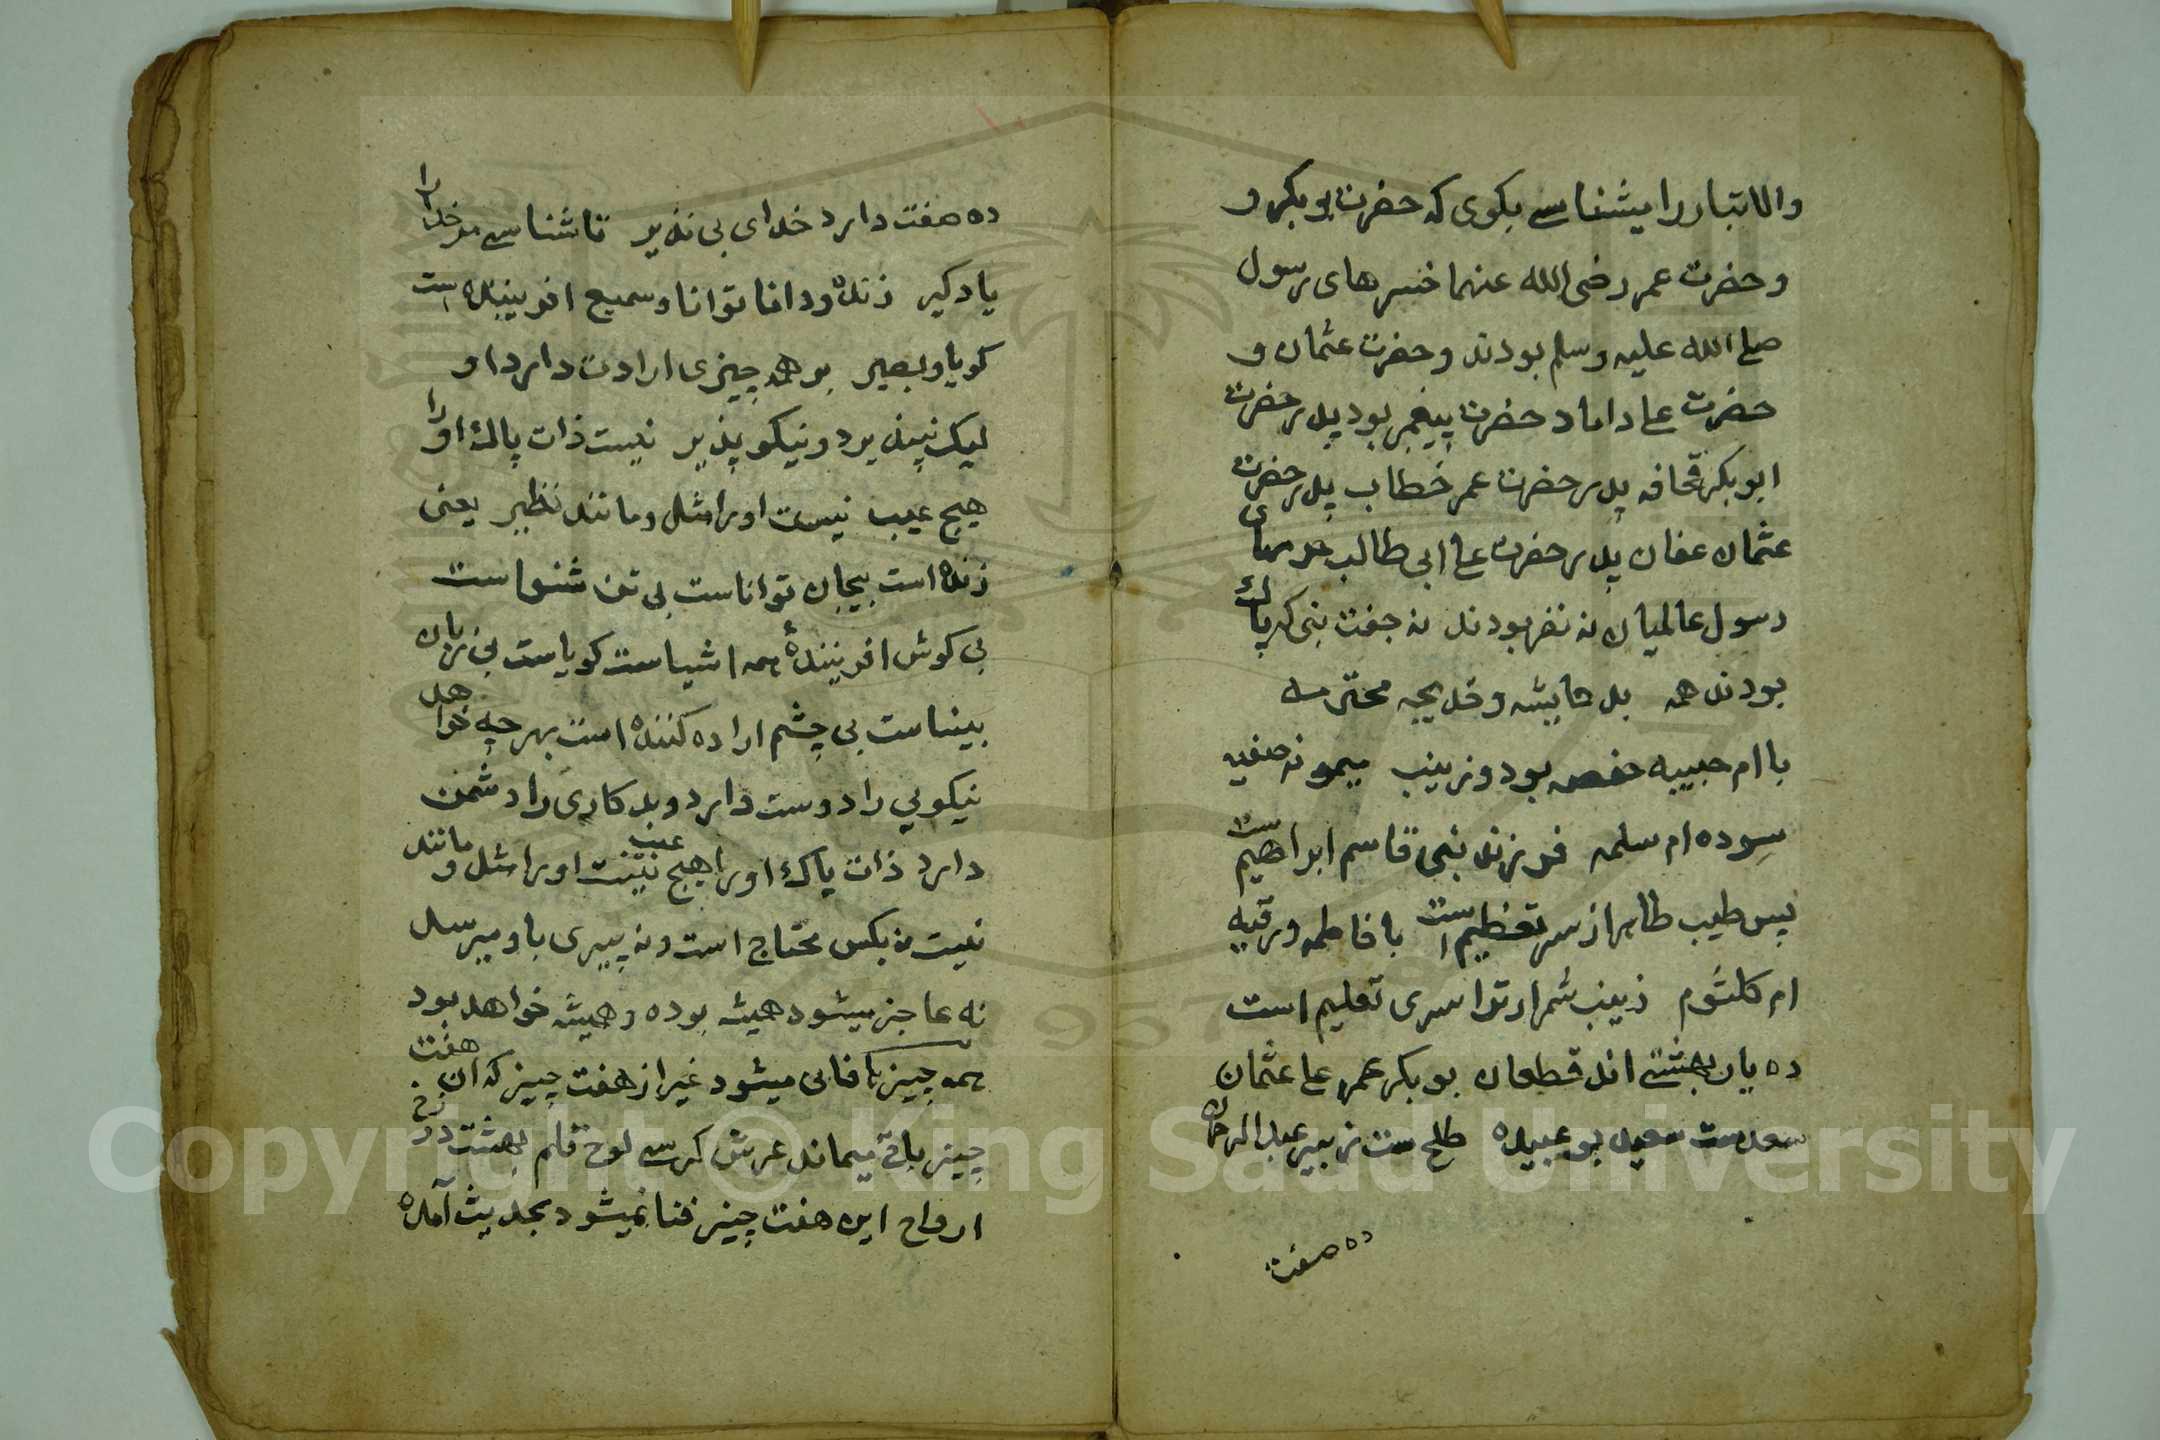 والاتبار را بشناسے بکوی که حضرت بوبکر و
وحضرت عمر رضی الله عنهما خسرهای رسول
صلے الله علیه وسلم بودند وحضرت عثمان و
حضرت علے داماد حضرت پیغمبر بود پدر حضرت
ابوبکر قحافه پدر حضرت عمر خطاب پدر حضرت
عثمان عفان پدر حضرت علے ابی طالب حرمهای
رسول عالمیان نه نفر بودند نه جفت نبی که پاک
بودند همه بد عایشه وخدیجه محترمه
با ام حبیبه حفصه بود وزینب میمونه صفیه
سوده ام سلمه فرزند نبی قاسم ابراهیم ست
پس طیب طاهر از سر تعظیم است با فاطمه ورقیه
ام کلثوم زینب شمار ترا سری تعلیم است
ده یار بهشتے اند قطعان بوبکر عمر علے عثمان
سعدست سعید بوعبیده طلحه ست زبیر عبدالرحمان
ده صفت
ده صفت دارد خدای بی نذیر تا شناسے مر خدا را
یادکیر زنده ودانا توانا وسمیع افریننده است
کویا وبصیر بر همه چیزی ارادت دارد او
لیک نپذیرد ونیکو پذیر نیست ذات پاک او را
هیچ عیب نیست اورا مثل ومانند نظیر یعنی
زنده است بیجان تواناست بی تن شنواست
بی کوش افرینندهٔ همه اشیاست کویاست بی زبان
بیناست بی چشم اراده کننده است بهر چه خواهد
نیکویی را دوست دارد وبدکاری را دشمن
دارد ذات پاک اورا هیچ عیب نیست اورا مثل و مانند
نیست نه بکس محتاج است ونه پیری باو میرسد
نه عاجز میشود همیشه بوده وهمیشه خواهد بود
همه چیزها فانی میشود غیر از هفت چیز که ان هفت
چیز باقے میماند عرش کرسے لوح قلم بهشت دوزخ
ارواح این هفت چیز فنا نمیشود بحدیث آمده
Copyright © King Saud University
1957